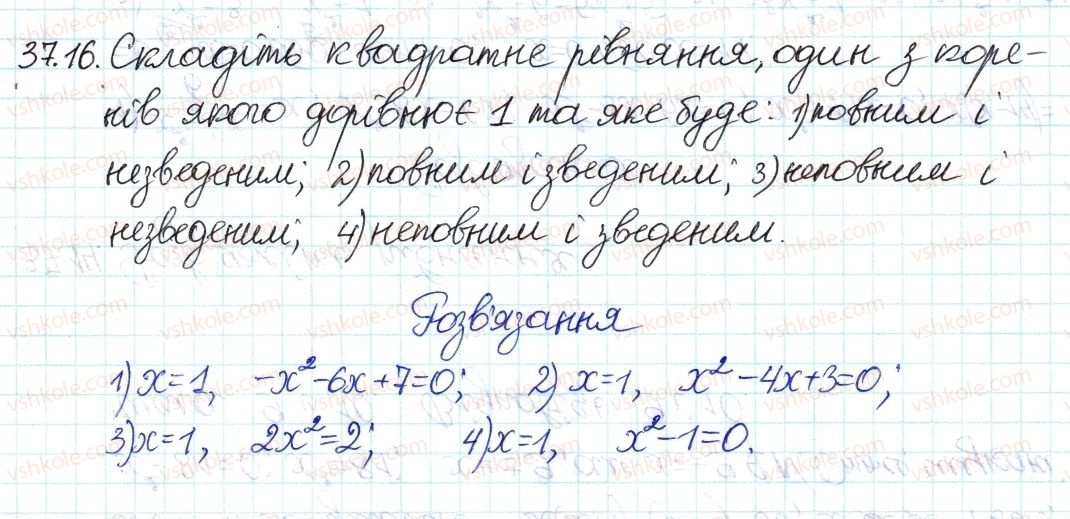 37.16. Складіть квадратне рівняння, один з коре-
нів якого дорівнює 1 та яке буде: 1) повним і
незведеним; 2) повним і зведеним; 3) неповним і
незведеним; 4) неповним і зведеним.
Розв'язання
1) x=1, -x²-6x+7=0; 2) x=1, x²-4x+3=0;
3) x=1, 2x²=2; 4) x=1, x²-1=0.